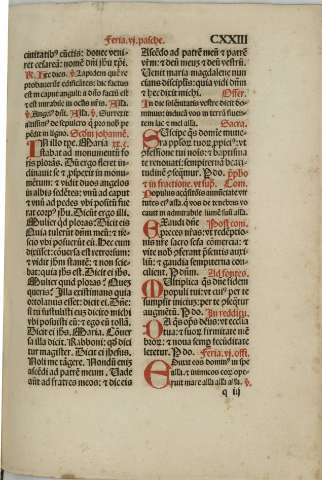 Feria. vj. pasche.
CXXIII
ciuitatibus cunctis: donec veni-
ret cesareā: nomē dñi jhu xpi.
R. Hec dies. v. Lapidem quē re
probauerūt edificātes: hic factus
est in caput anguli: a dño factū est
et est mirabile in oculis nr̄is. Alla.
v. Angelus dñi. Alla. v. Surrexit
dñs de sepulcro q̄ pro nob̄ pe
pēdit in ligno. Scdm johannē.
In illo tpe. Maria xx. c.
stabat ad monumentū fo
ris plorās. Dum ergo fleret: in
clinauit se et pspexit in monu-
mentum: et vidit duos angelos
in albis sedētes: vnū ad caput
et vnū ad pedes vbi positū fue
rat corpus jhu. Dicūt ergo illi.
Mulier qd ploras: Dicit eis
Quia tulerūt dñm meū: et ne-
scio vbi posuerūt eū: Hec cum
dixisset: cōuersa est retrorsum:
et vidit jhm stantē: et non scie-
bat: quia jhs est. Dicit ei jhs.
Mulier quid ploras: Quez
queris: Illa existimans quia
ortolanus esset: dicit ei. Dñe:
si tu sustulisti eus dicito michi
vbi posuisti eū: et ego eū tollā.
Dicit ei jhs. Maria. Cōuer
sa illa dicit. Rabboni: qd dici
tur magister. Dicit ei jhesus.
Noli me tāgere. Nondū enīz
ascēdi ad patrēm meum. Vade
aut ad fratres meos: et dic eis
Ascēdo ad patrē meū et patrē
vrm: et deū meuz et deū vestrū.
Venit maria magdalene nun
cians discipulis: quia vidi dn̄m
et hec dixit michi. Offer.
In die solennitatis vestre dicit do-
minus: inducā vos in terrā fluen
tem lac et mel alla. Secreta.
Suscipe qs domine mune-
ra pploruz tuoruz ppicius: vt
cōfessione tui nois: et baptisma
te renouati: sempiternā beati
tudinē psequātur. P dn̄o.
in fractione. vt sup. Com.
Populus acquisitōis annūciate vir
tutes eius alla. q vos de tenebris vo
cauit in admirabile lumē suū alla.
Exaudi dn̄e Postcom.
preces nr̄as: vt redēptio-
nis nr̄e sacro sc̄a cōmercia: et
vite nob̄ pferant psentis auxi-
liū: et gaudia sempiterna con
cilient. P dn̄um. Ad fontes.
Multiplica qs dn̄e fidem
populi tui: vt cui per te
sumpsit iniciuz: per te pseqtur
augmētū. P. In redditu.
Da qs ops deus: vt ecclia
tua: et suoruz firmitate mē
broruz: et noua semp fecūditate
letetur. P dn̄o. Feria. vj. offi.
Eduxit eos dominus in spe
alla. et inimicos eorum ope-
ruit mare alla alla alla. v.
q iij